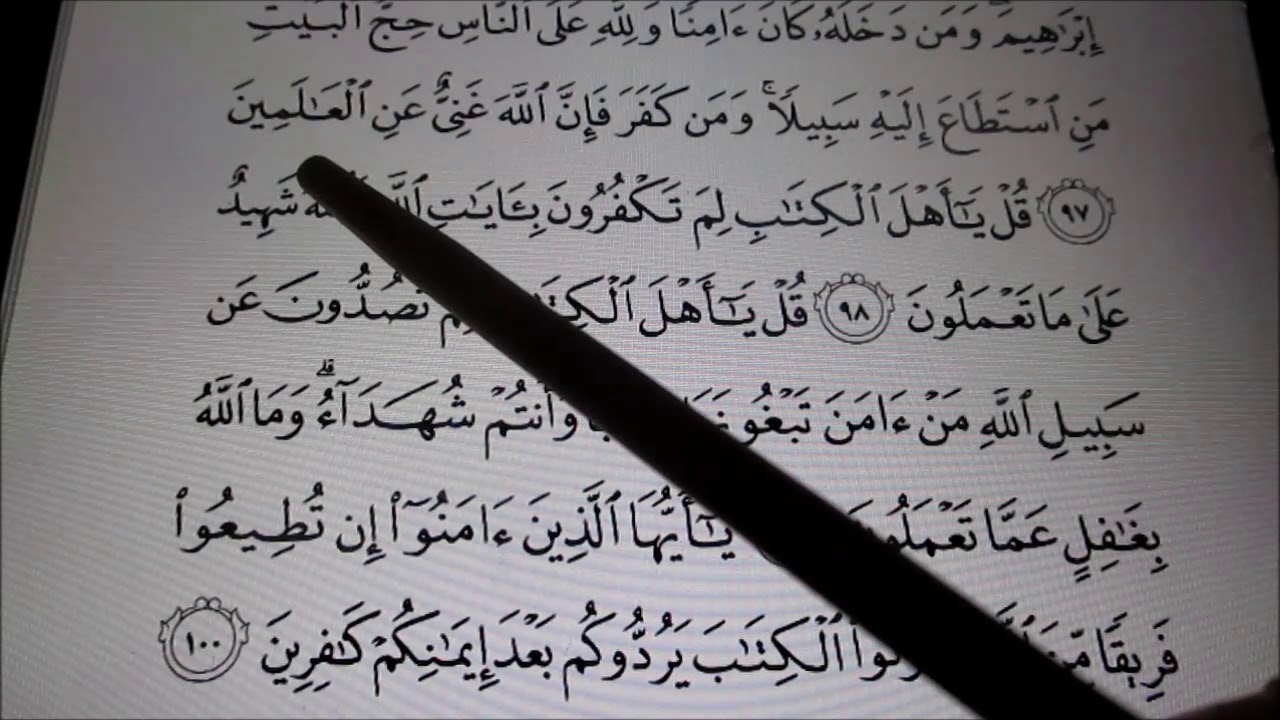 إِبْرَٰهِيمَ وَمَن دَخَلَهُۥ كَانَ ءَامِنًا وَلِلَّهِ عَلَى ٱلنَّاسِ حِجُّ ٱلْبَيْتِ
مَنِ ٱسْتَطَاعَ إِلَيْهِ سَبِيلًا ۚ وَمَن كَفَرَ فَإِنَّ ٱللَّهَ غَنِىٌّ عَنِ ٱلْعَٰلَمِينَ
٩٧ قُلْ يَٰٓأَهْلَ ٱلْكِتَٰبِ لِمَ تَكْفُرُونَ بِـَٔايَٰتِ ٱللَّهِ شَهِيدٌ
عَلَىٰ مَا تَعْمَلُونَ ٩٨ قُلْ يَٰٓأَهْلَ ٱلْكِتَٰبِ لِمَ تَصُدُّونَ عَن
سَبِيلِ ٱللَّهِ مَنْ ءَامَنَ تَبْغُونَهَا وَأَنتُمْ شُهَدَآءُ ۗ وَمَا ٱللَّهُ
بِغَٰفِلٍ عَمَّا تَعْمَلُونَ يَٰٓأَيُّهَا ٱلَّذِينَ ءَامَنُوٓا۟ إِن تُطِيعُوا۟
فَرِيقًا مِّنَ ٱلْكِتَٰبَ يَرُدُّوكُم بَعْدَ إِيمَٰنِكُمْ كَٰفِرِينَ ١٠٠